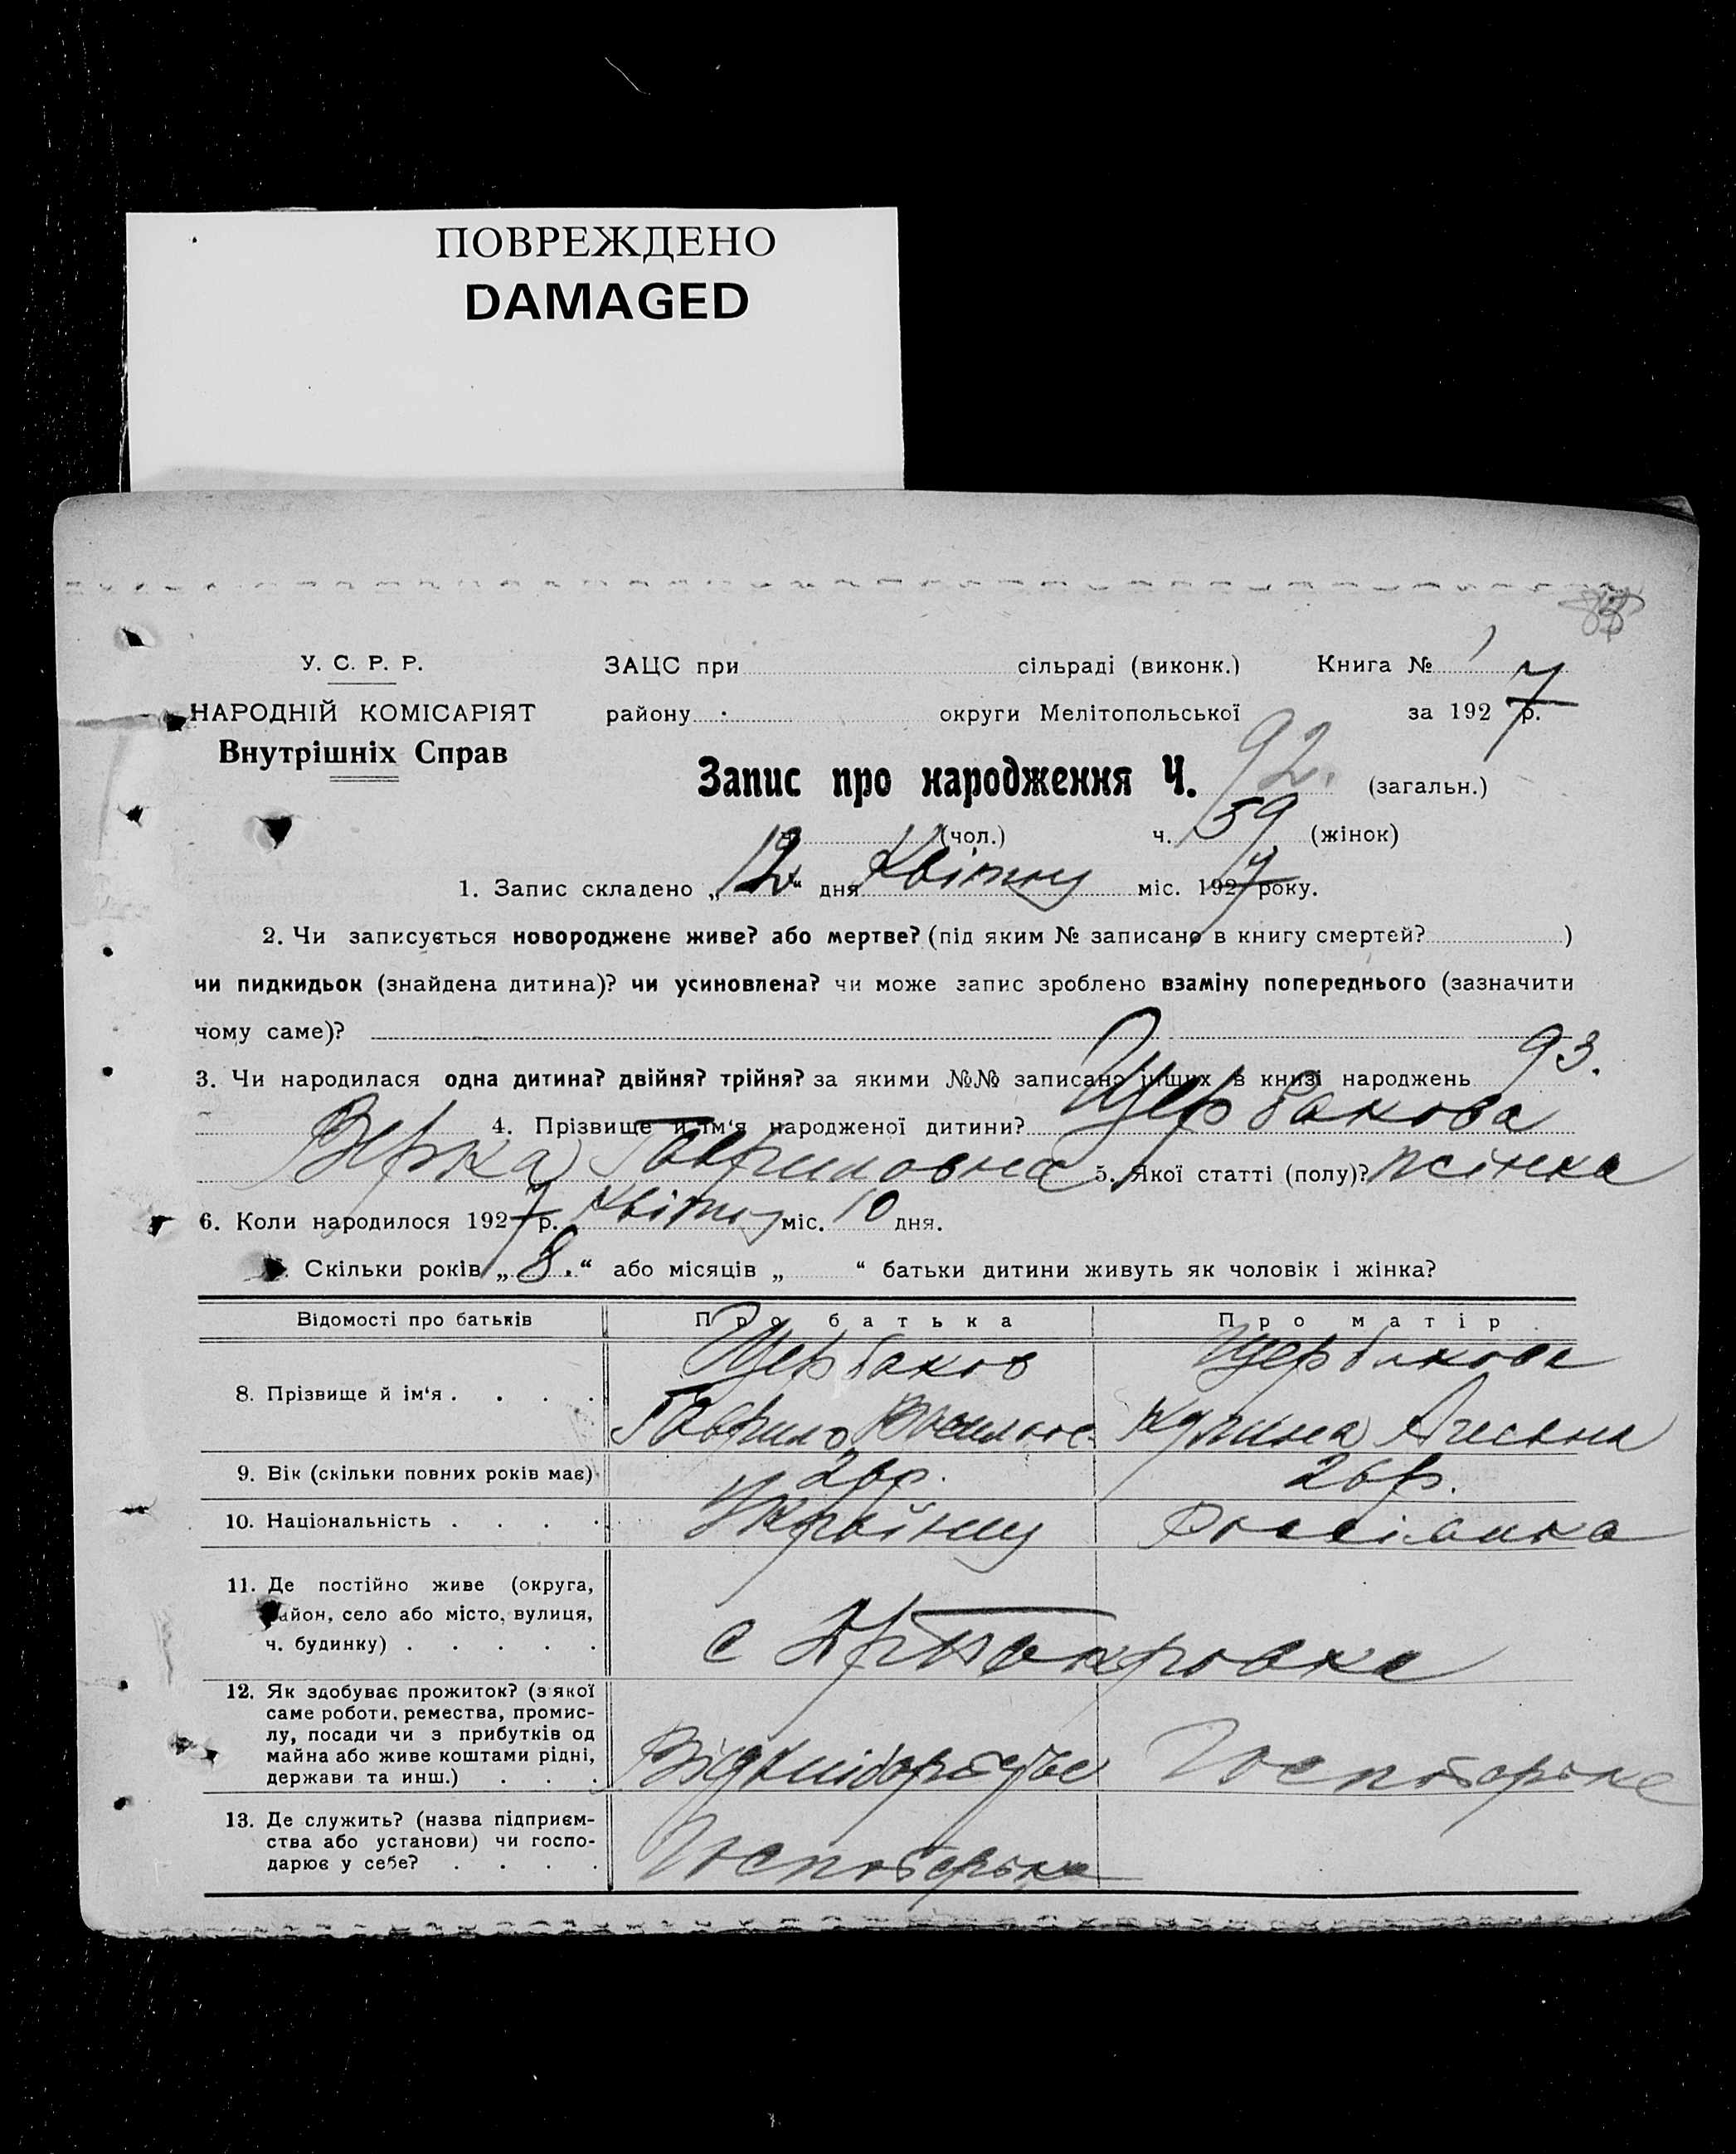 ПОВРЕЖДЕНО
DAMAGED
У. С. Р. Р.
НАРОДНІЙ КОМІСАРІЯТ
Внутрішніх Справ
ЗАЦС при сільраді (виконк.) Книга № 1
району округи Мелітопольської за 1927 р.
Запис про народження Ч. 92. (загальн.)
(чол.) ч. 59 (жінок)
1. Запис складено „12“ дня Квітня міс. 1927 року.
2. Чи записується новороджене живе? або мертве? (під яким № записано в книгу смертей? )
чи пидкидьок (знайдена дитина)? чи усиновлена? чи може запис зроблено взаміну попереднього (зазначити
чому саме)?
3. Чи народилася одна дитина? двійня? трійня? за якими №№ записано інших в книзі народжень 93.
4. Прізвище й ім‘я народженої дитини? Щербакова
Вірка Гавриловна 5. Якої статті (полу)? жінка
6. Коли народилося 1927 р. Квітня міс. 10 дня.
Скільки років „8.“ або місяців „ “ батьки дитини живуть як чоловік і жінка?
Відомості про батьків Про батька Про матір
8. Прізвище й ім‘я Щербаков Щербакова
Гаврило Василье. Кулина
9. Вік (скільки повних років має) 26р. 26р.
10. Національність Українец Россіанка
11. Де постійно живе (округа,
район, село або місто, вулиця,
ч. будинку) с
12. Як здобуває прожиток? (з якої
саме роботи, ремества, промис-
лу, посади чи з прибутків од
майна або живе коштами рідні,
держави та инш.) Господарьке
13. Де служить? (назва підприєм-
ства або установи) чи госпо-
дарює у себе? Господарьке